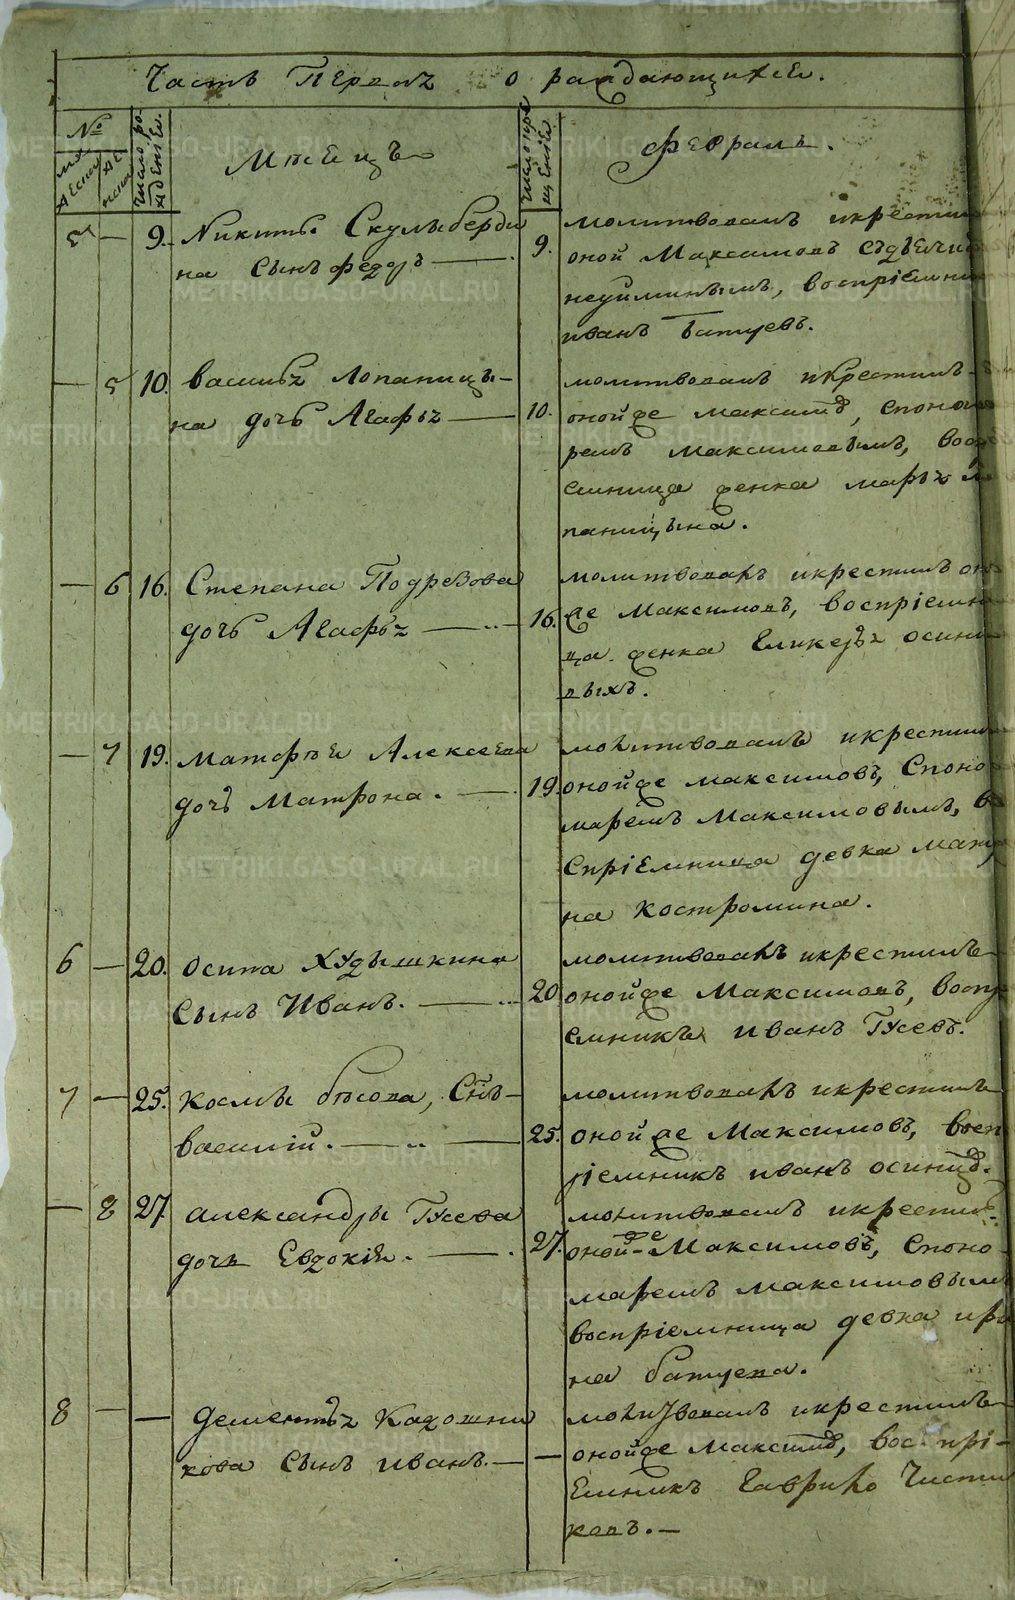 Часть Первая о раждающихся.
№ мѫжеска женска
число рожденiя
Мѣсяцъ
число крещенiя
Февраль.
5 — 9. Никиты Скулыберди
на сынъ Федоръ — 9.
молитвовалъ икрестил
оной Максимовъ
воспрiемни
иванъ Батуевъ.
— 5 10. василья Лопаницы-
на дочь Агафья — 10.
молитвовалъ икрестилъ
онойже максимов, спонома
ремъ Максимовымъ, воспрi
емница женка марья ло
паницына.
— 6 16. Степана Подрезова
дочь Агафья — 16.
молитвовалъ икрестилъ оно
же Максимовъ, воспрiемни
ца женка Гликерья осини
выхъ.
— 7 19. матфѣя Алексеева
дочь Матрона. — 19.
молитвовалъ икрестил
онойже максимовъ, споно
маремъ Максимовымъ, во
спрiемница девка матро
на костромина.
6 — 20. осипа Худышкина
сынъ Иванъ. — 20
молитвовалъ икрестилъ
онойже Максимовъ, воспрi
емникъ иванъ Гусевъ.
7 — 25. космы бѣсова, Снъ
василiй. — 25.
молитвовалъ икрестилъ
онойже Максимовъ, восп
рiемникъ иванъ осинцов.
— 8 27. александры Гусева
дочь Евдокiя. — 27.
молитвовалъ икрестилъ
оной же Максимовъ, споно
маремъ максимовымъ
воспрiемница девка ири
на батуева.
8 — — дементья Кадошни
кова сынъ иванъ. — —
молитвовалъ икрестилъ
онойже максимов, воспрi-
емникъ Гаврило Чистя
ковъ. —
METRIKI.GASO-URAL.RU